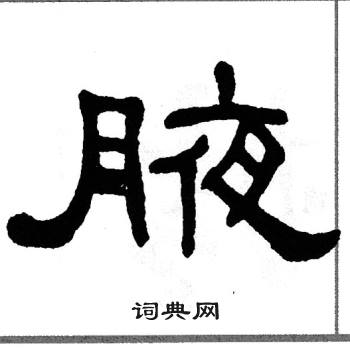 腋
词典网